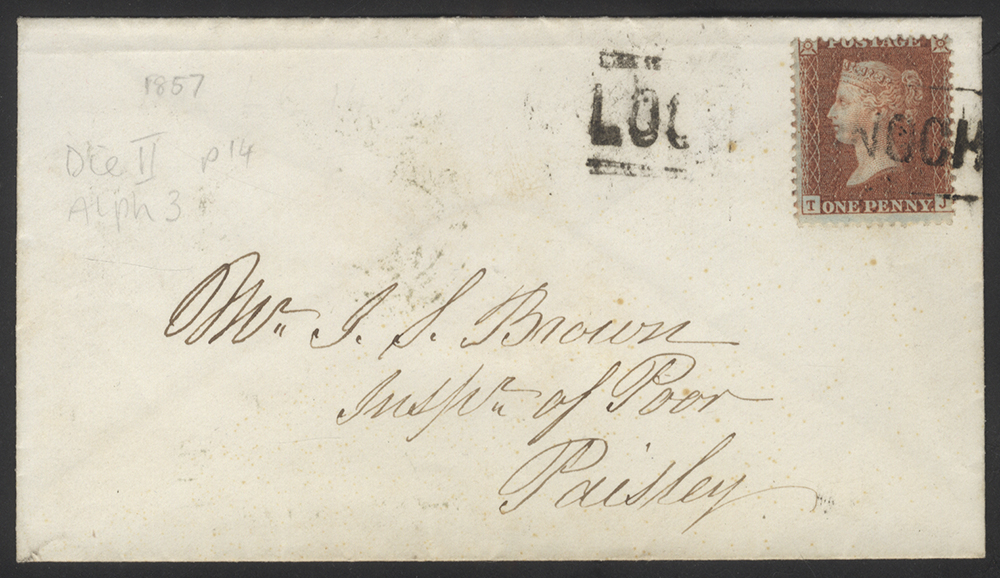 1857
Die II P14
Alph 3
LOC
NGCH
POSTAGE
T ONE PENNY J
Mr. J. S. Brown
Inspr. of Poor
Paisley